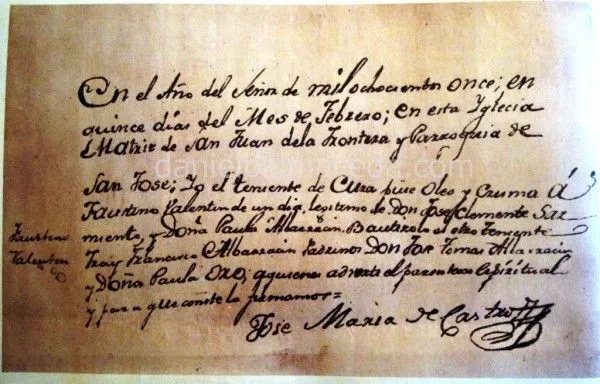 En el Año del Señor de mil ochocientos once; en
quince dias del Mes de Febrero; en esta Yglecia
Matriz de San Juan dela Frontera y Parroquia de
San José; Yo el teniente de Cura puse Oleo y Crisma á
Faustino Valentin de un dia, legitimo de Don José Clemente Sar
miento, y Doña Paula Albarracin. Bautizolo el otro Teniente
Fray Francisco Albarracin Padrinos Don José Tomas Albarracin
y Doña Paula Oro; aquienes adverti el parentesco Espiritual
y para que conste lo firmamos=
José Maria de Castro
Faustino
Valentin